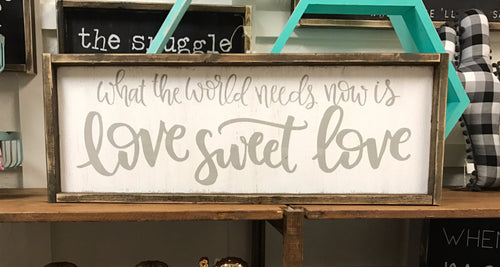 'll
the snuggle
what the world needs now is
love sweet love
WHEN